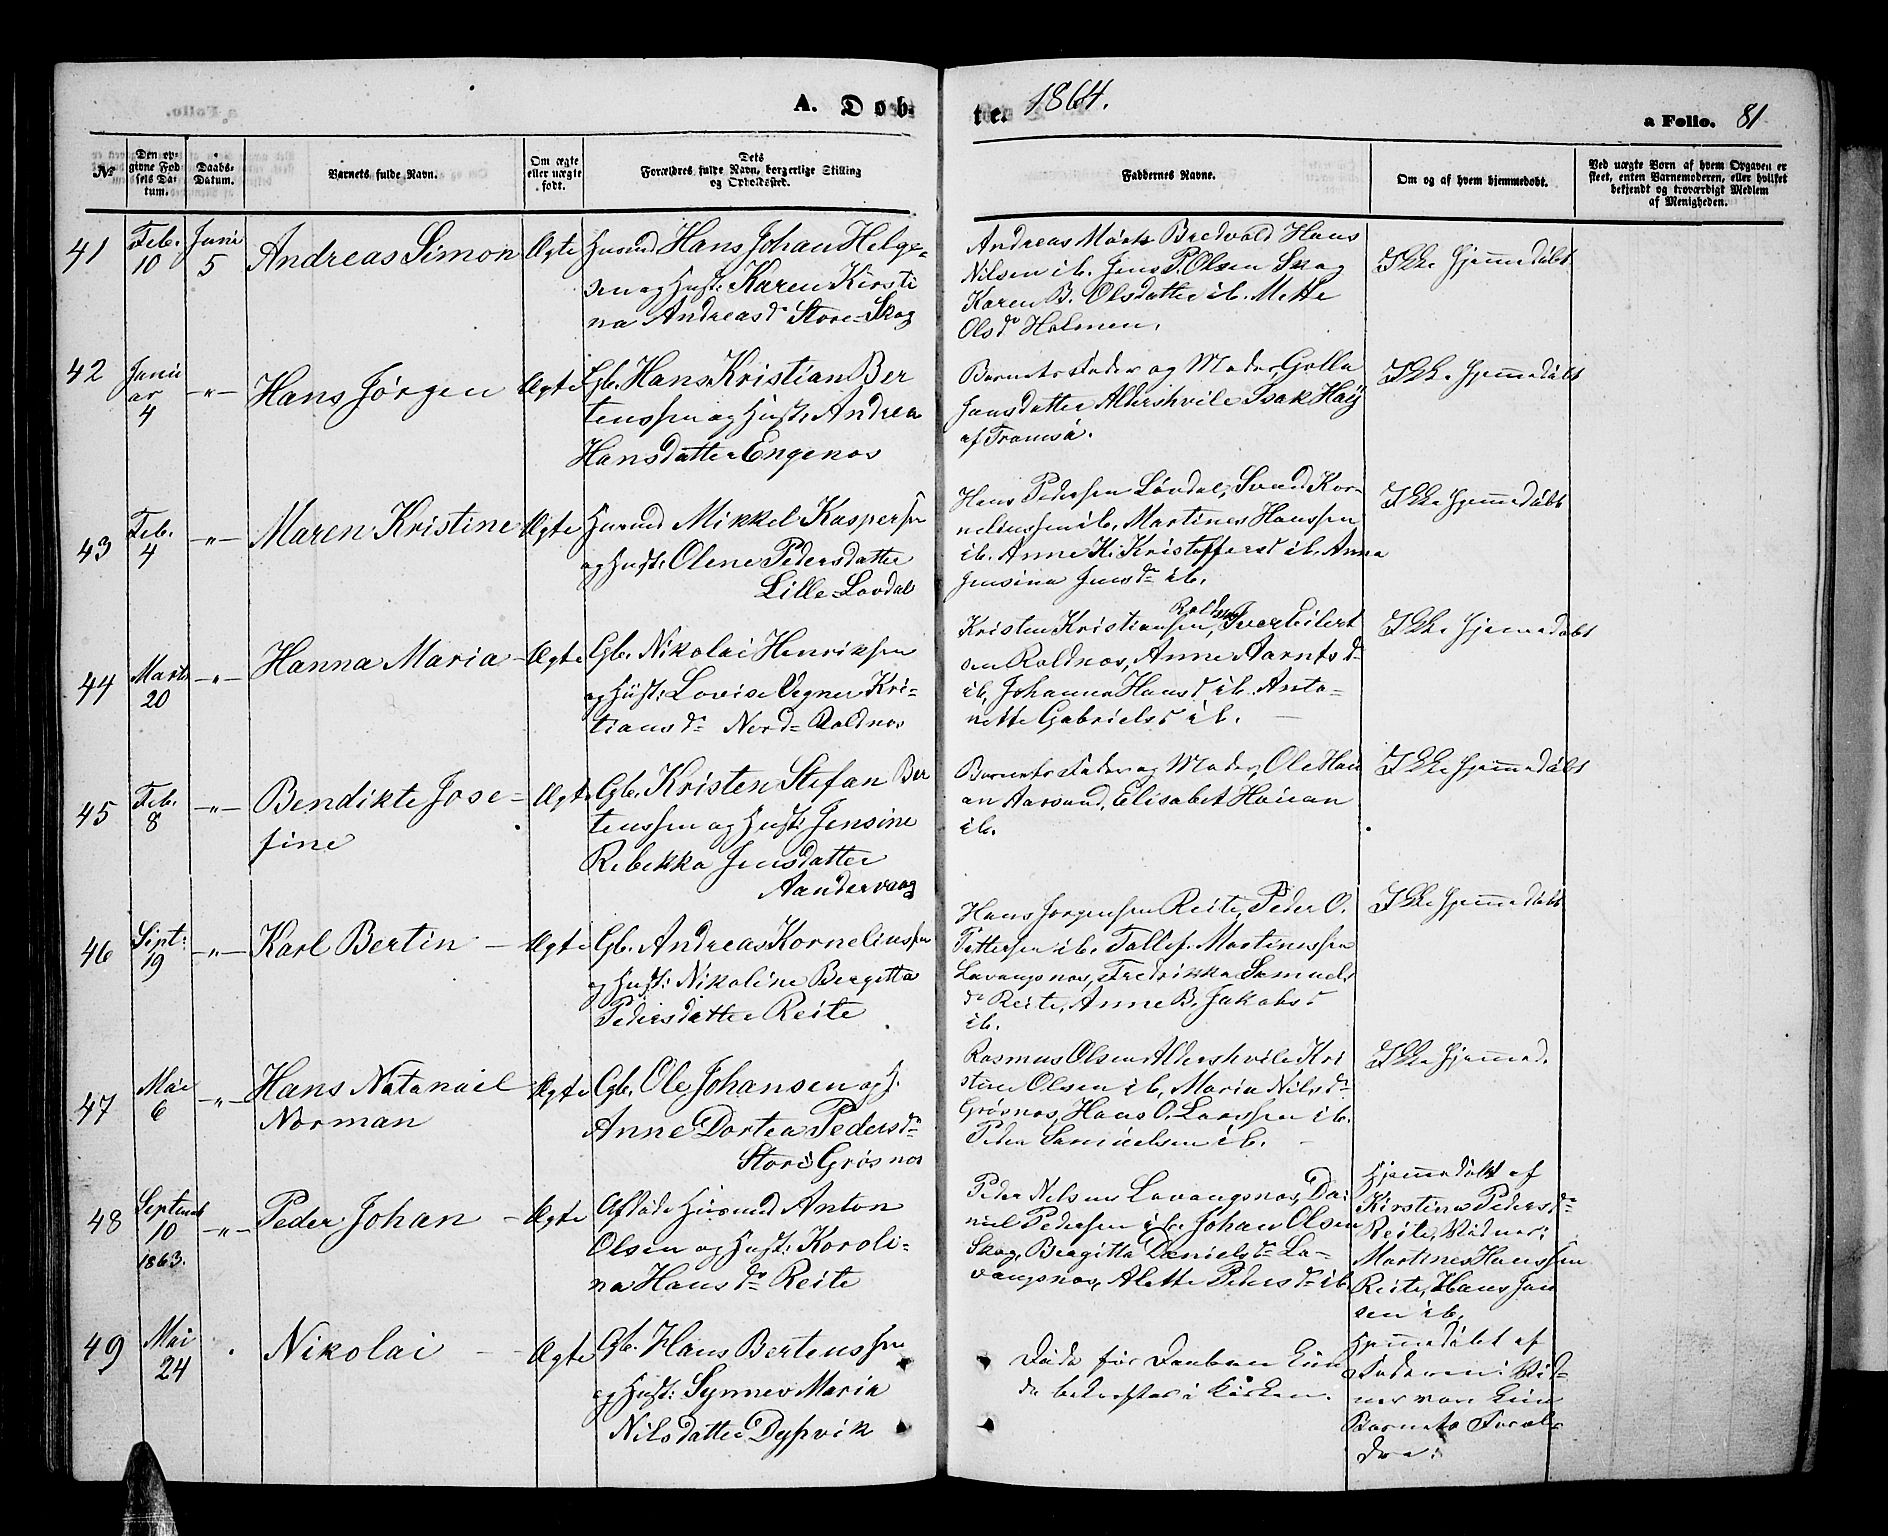 A. Døb-
te. 1864.
a Folio. 81
No
Den op-
givne Fød-
sels Da-
tum.
Daabs-
Datum.
Barnets fulde Navn.
Om ægte
eller uægte
født.
Dets
Forældres fulde Navn, borgerlige Stilling
og Opholdssted.
Faddernes Navne.
Om og af hvem hjemmedøbt.
Ved uægte Børn af hvem Opgaven er
skeet, enten Barnemoderen, eller hvilket
bekjendt og troværdigt Medlem
af Menigheden.
41
Feb.
10
Juni
5
Andreas Simon
Ægte
Husmd Hans Johan Helge-
sen og Hust: Karen Kirsti
na Andreasdr Store-Skog
Andreas Bredvold Hans
Nilsen ib. Jens P. Olsen Skog
Karen B. Olsdatter ib. Mette
Olsdr Holmen.
Ikke hjemmedøbt
42
Janu
ar
4
-"-
Hans Jørgen
Ægte
Gb. Hans Kristian Ber
tenssen og Hust: Andrea
Hansdatter Engenes
Barnets Fader og Moder, Golla
Jensdatter Aldershvile Isak Høy
af Tromsø.
Ikke hjemmedøbt
43
Feb.
4
-"-
Maren Kristine
Ægte
Husmd Mikkel Kaspersen
og Hust: Olene Pedersdatter
Lille-Løvdal
Hans Pedersen Løvdal, Kor-
neliussen ib. Martines Hanssen
ib. Anne K. Kristoffersd ib. Anna
Jensina Jensdr ib.
Ikke hjemmedøbt
44
Marts
20
-"-
Hanna Maria
Ægte
Gb. Nikolai Henriksen
og Hust: Lovise Vegner Kri-
stiansdr Nord-Roldnes
Kristen Kristiansen Roldnes, Iver Eilert
sen Roldnes, Anne Aarntsdr
ib. Johanna Hansd ib. Anto-
nette Gabrielsd ib.
Ikke hjemmedøbt
45
Feb.
8
-"-
Bendikte Jose-
fine
Ægte
Gb. Kristen Stefan Ber
tenssen og Hust: Jensine
Rebekka Jensdatter
Aandervaag
Barnets Fader og Moder, Ole Hou
an Aarsand, Elisabet Houan
ib.
Ikke hjemmedøbt
46
Sept:
19
-"-
Karl Bertin
Ægte
Gb. Andreas Korneliussen
og Hust: Nikoline Bergitta
Pedersdatter Reite
Hans Jørgensen Reite, Peder O.
Pettersen ib. Tollef Martinussen
Lavangsnes, Fredrikka Samuels
dr Reite, Anne B. Jakobsd
ib.
Ikke hjemmedøbt
47
Mai
6
-"-
Hans Natanael
Norman
Ægte
Gb. Ole Johansen og H.
Anne Dortea Pedersdr
Store Grøsnes
Rasmus Olsen Aldershvile Kri
stine Olsen ib. Maria Nilsdr
Grøsnes, Hans O. Larssen ib.
Peder Samuelsen ib.
Ikke hjemmed.
48
Septemb
10
1863.
-"-
Peder Johan
Ægte
Afdøde Husmd Anton
Olsen og Hust: Karoli-
na Hansdr Reite
Peder Nelsen Lavangsnes, Da-
niel Pedersen ib. Johan Olsen
Skog, Bergitta Danielsdr La-
vangsnes, Alette Pedersdr ib.
Hjemmedøbt af
Kirstine Pedersdr
Reite, Vidner:
Martines Hanssen
Reite, Hans Jan
sen ib.
49
Mai
24
Nikolai
Ægte
Gb. Hans Bertenssen
og Hust: Synnev Maria
Nilsdatter Dypvik
Døde før Daaben kun
de bekræftes i Kirken.
Hjemmedøbt af
Faderen: Vid-
ner var kun
Barnets Foræl-
dre.